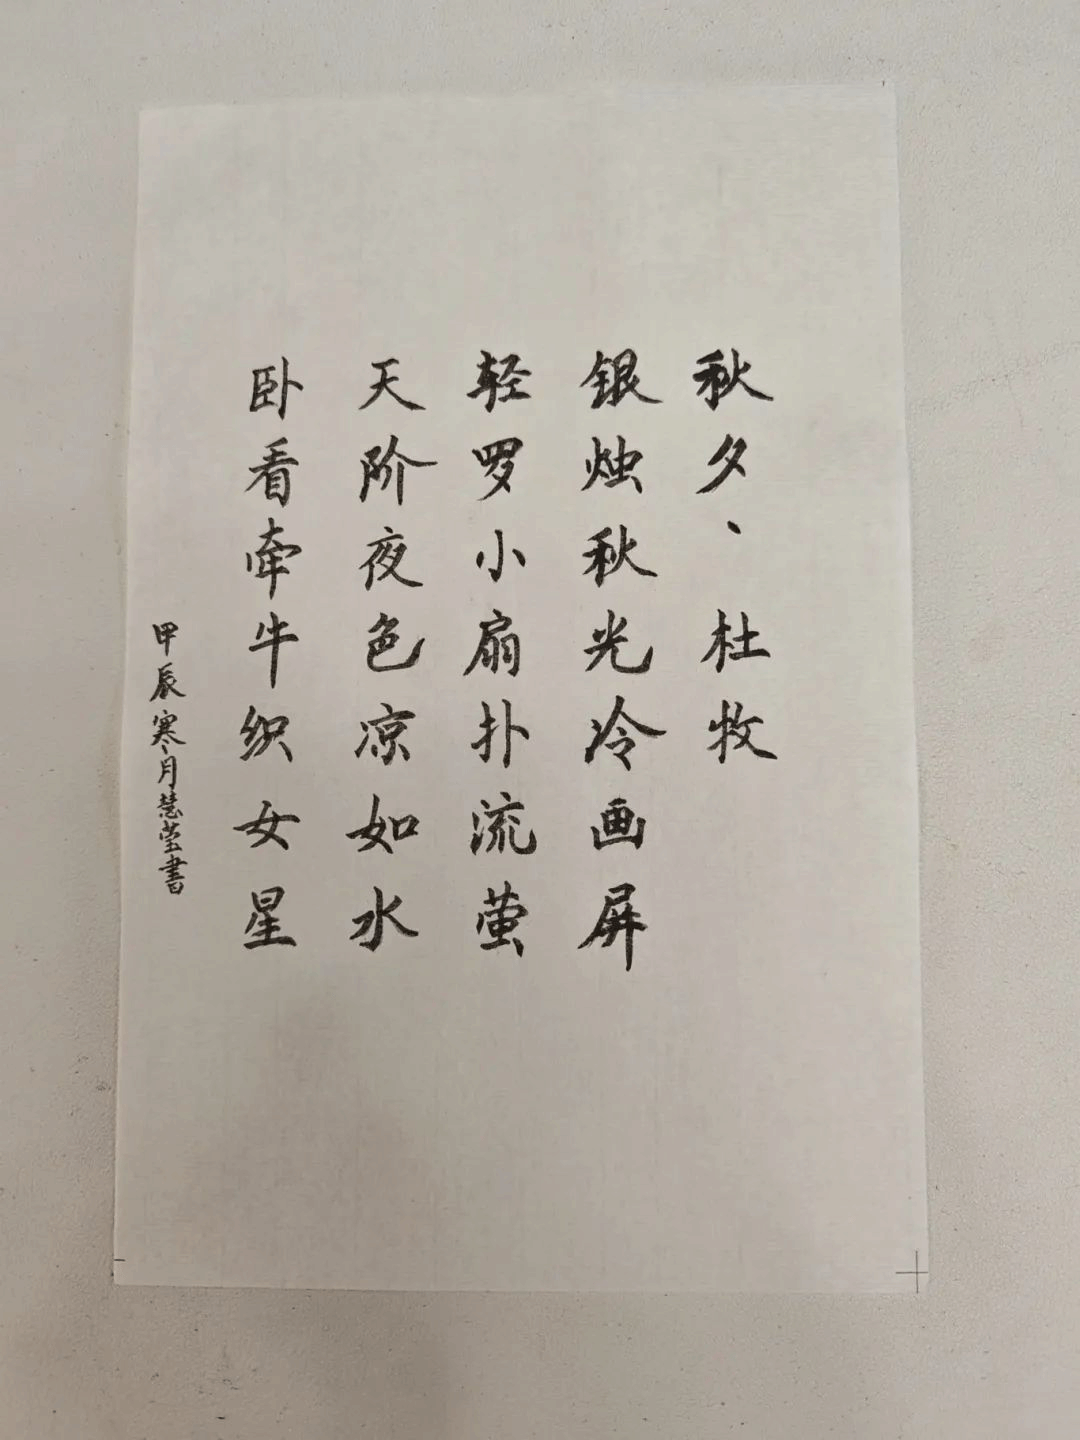 秋夕、杜牧
银烛秋光冷画屏
轻罗小扇扑流萤
天阶夜色凉如水
卧看牵牛织女星
甲辰寒月慧莹書